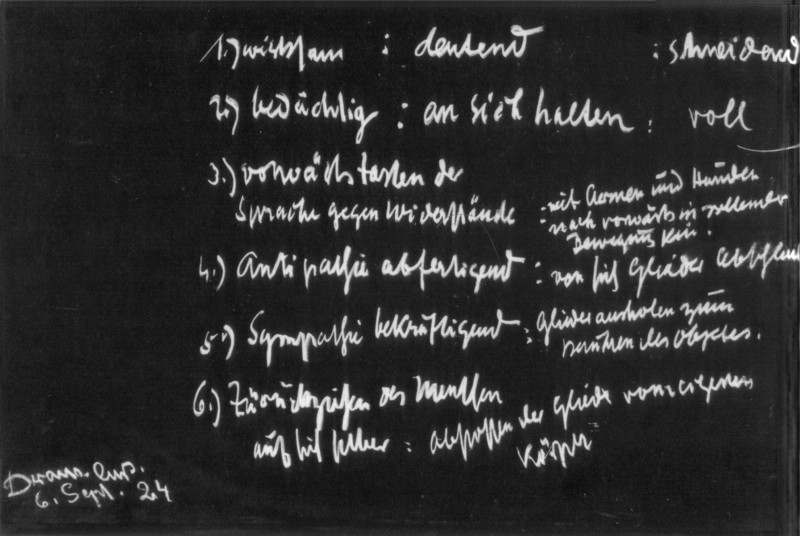 1.) wirksam : deutend : schneidend
2.) bedächtig : an sich halten : voll
3.) vorwärtstasten der
Sprache gegen Widerstände : mit Armen und Händen
nach vorwärts in rollender
Bewegung sein.
4.) Antipathie abfertigend : von sich Glieder abschleud
5.) Sympathie bekräftigend : Glieder ausholen zum
berühren des Objectes.
6.) Zurückziehen des Menschen
auf sich selber : abstoßen der Glieder vom eigenen
Körper
Dram. Curs.
6. Sept. 24